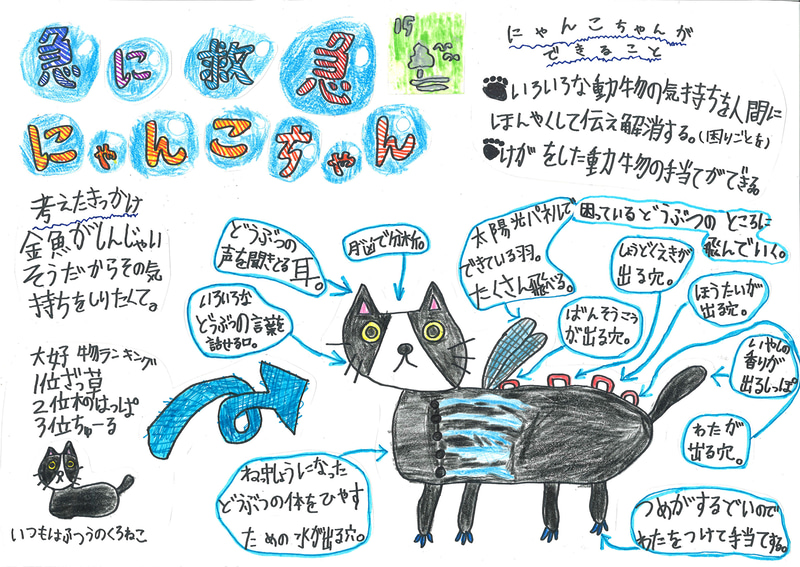 急に救急
にゃんこちゃん
15
にゃんこちゃんが
できること
いろいろな動物の気持ちを人間に
ほんやくして伝え解消する。(困りごとを)
けがをした動物の手当てができる。
考えたきっかけ
金魚がしんじゃい
そうだからその気
持ちをしりたくて。
大好物ランキング
1位ざっ草
2位木のはっぱ
3位ちゅーる
いつもはふつうのくろねこ
どうぶつの
声を聞きとる耳。
脳で分析。
いろいろな
どうぶつの言葉を
話せる口。
太陽光パネルで
できている羽。
たくさん飛べる。
困っているどうぶつのところに
飛んでいく。
しょうどくえきが
出る穴。
ばんそうこう
が出る穴。
ほうたいが
出る穴。
いやしの
香りが
出るしっぽ
わたが
出る穴。
ねっ中しょうになった
どうぶつの体をひやす
ための水が出る穴。
つめがするどいので
わたをつけて手当てする。